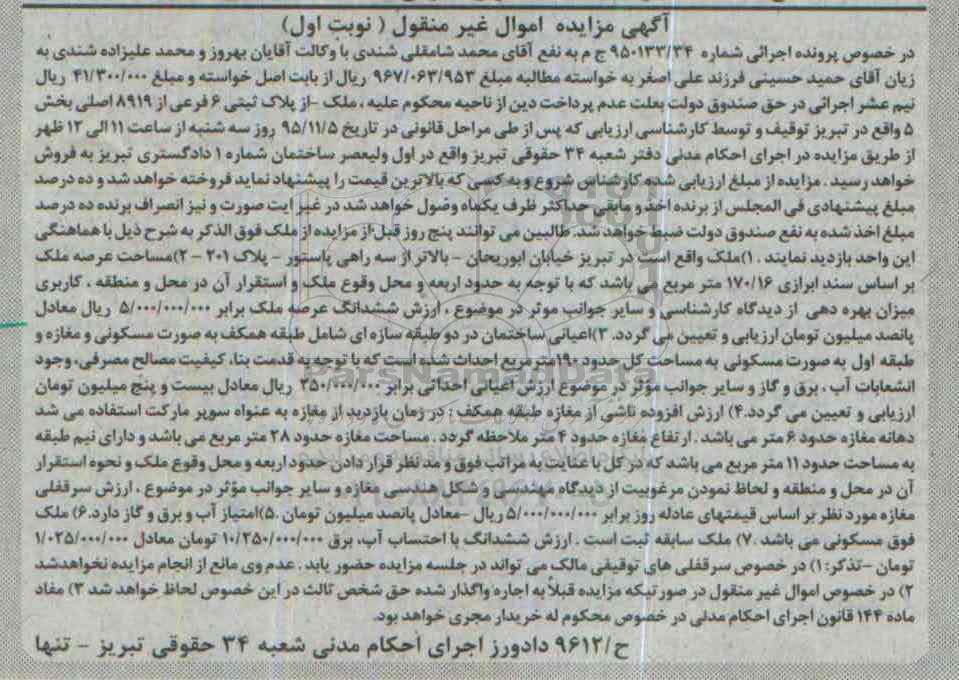 آگهی مزایده اموال غیر منقول ( نوبت اول)
در خصوص پرونده اجرائی شماره ۹۵۰۱۳۳/۳۴ ج م به نفع آقای محمد شامقلی شندی با وکالت آقایان بهروز و محمد علیزاده شندی به
زیان آقای حمید حسینی فرزند علی اصغر به خواسته مطالبه مبلغ ۹۶۷/۰۶۳/۹۵۳ ریال از بابت اصل خواسته و مبلغ ۴۱/۳۰۰/۰۰۰ ریال
نیم عشر اجرائی در حق صندوق دولت بعلت عدم پرداخت دین از ناحیه محکوم علیه ، ملک -از پلاک ثبتی ۶ فرعی از ۸۹۱۹ اصلی بخش
۵ واقع در تبریز توقیف و توسط کارشناسی ارزیابی که پس از طی مراحل قانونی در تاریخ ۹۵/۱۱/۵ روز سه شنبه از ساعت ۱۱ الی ۱۲ ظهر
از طریق مزایده در اجرای احکام مدنی دفتر شعبه ۳۴ حقوقی تبریز واقع در اول ولیعصر ساختمان شماره ۱ دادگستری تبریز به فروش
خواهد رسید . مزایده از مبلغ ارزیابی شده کارشناس شروع و به کسی که بالاترین قیمت را پیشنهاد نماید فروخته خواهد شد و ده درصد
مبلغ پیشنهادی فی المجلس از برنده اخذ و مابقی حداکثر ظرف یکماه وصول خواهد شد در غیر ایت صورت و نیز انصراف برنده ده درصد
مبلغ اخذ شده به نفع صندوق دولت ضبط خواهد شد. طالبین می توانند پنج روز قبل از مزایده از ملک فوق الذکر به شرح ذیل با هماهنگی
این واحد بازدید نمایند . ۱)ملک واقع است در تبریز خیابان ابوریحان - بالاتر از سه راهی پاستور - پلاک ۲۰۱ - ۲)مساحت عرصه ملک
بر اساس سند ابرازی ۱۷۰/۱۶ متر مربع می باشد که با توجه به حدود اربعه و محل وقوع ملک و استقرار آن در محل و منطقه ، کاربری
میزان بهره دهی از دیدگاه کارشناسی و سایر جوانب موثر در موضوع ، ارزش ششدانگ عرصه ملک برابر ۵/۰۰۰/۰۰۰/۰۰۰ ریال معادل
پانصد میلیون تومان ارزیابی و تعیین می گردد. ۳)اعیانی ساختمان در دو طبقه سازه ای شامل طبقه همکف به صورت مسکونی و مغازه و
طبقه اول به صورت مسکونی به مساحت کل حدود ۱۹۰متر مربع احداث شده است که با توجه به قدمت بنا، کیفیت مصالح مصرفی، وجود
انشعابات آب ، برق و گاز و سایر جوانب مؤثر در موضوع ارزش اعیانی احداثی برابر ۲۵۰/۰۰۰/۰۰۰ ریال معادل بیست و پنج میلیون تومان
ارزیابی و تعیین می گردد.۴) ارزش افزوده ناشی از مغازه طبقه همکف : در زمان بازدید از مغازه به عنوان سوپر مارکت استفاده می شد
دهانه مغازه حدود ۶ متر می باشد . ارتفاع مغازه حدود ۴ متر ملاحظه گردد . مساحت مغازه حدود ۲۸ متر مربع می باشد و دارای نیم طبقه
به مساحت حدود ۱۱ متر مربع می باشد که در کل با عنایت به مراتب فوق و مد نظر قرار دادن حدود اربعه و محل وقوع ملک و نحوه استقرار
آن در محل و منطقه و لحاظ نمودن مرغوبیت از دیدگاه مهندسی و شکل هندسی مغازه و سایر جوانب مؤثر در موضوع ، ارزش سرقفلی
مغازه مورد نظر بر اساس قیمتهای عادله روز برابر ۵/۰۰۰/۰۰۰/۰۰۰ ریال -معادل پانصد میلیون تومان .۵)امتیاز آب و برق و گاز دارد.۶) ملک
فوق مسکونی می باشد .۷) ملک سابقه ثبت است . ارزش ششدانگ با احتساب آب، برق ۱۰/۲۵۰/۰۰۰/۰۰۰ تومان معادل ۱/۰۲۵/۰۰۰/۰۰۰
تومان -تذکر: ۱) در خصوص سرقفلی های توقیفی مالک می تواند در جلسه مزایده حضور یابد . عدم وی مانع از انجام مزایده نخواهدشد
۲) در خصوص اموال غیر منقول در صورتیکه مزایده قبلاً به اجاره واگذار شده حق شخص ثالث در این خصوص لحاظ خواهد شد ۳) مفاد
ماده ۱۴۴ قانون اجرای احکام مدنی در خصوص محکوم له خریدار مجری خواهد بود.
ح/۹۶۱۲ دادورز اجرای احکام مدنی شعبه ۳۴ حقوقی تبریز - تنها
ParsNamadData